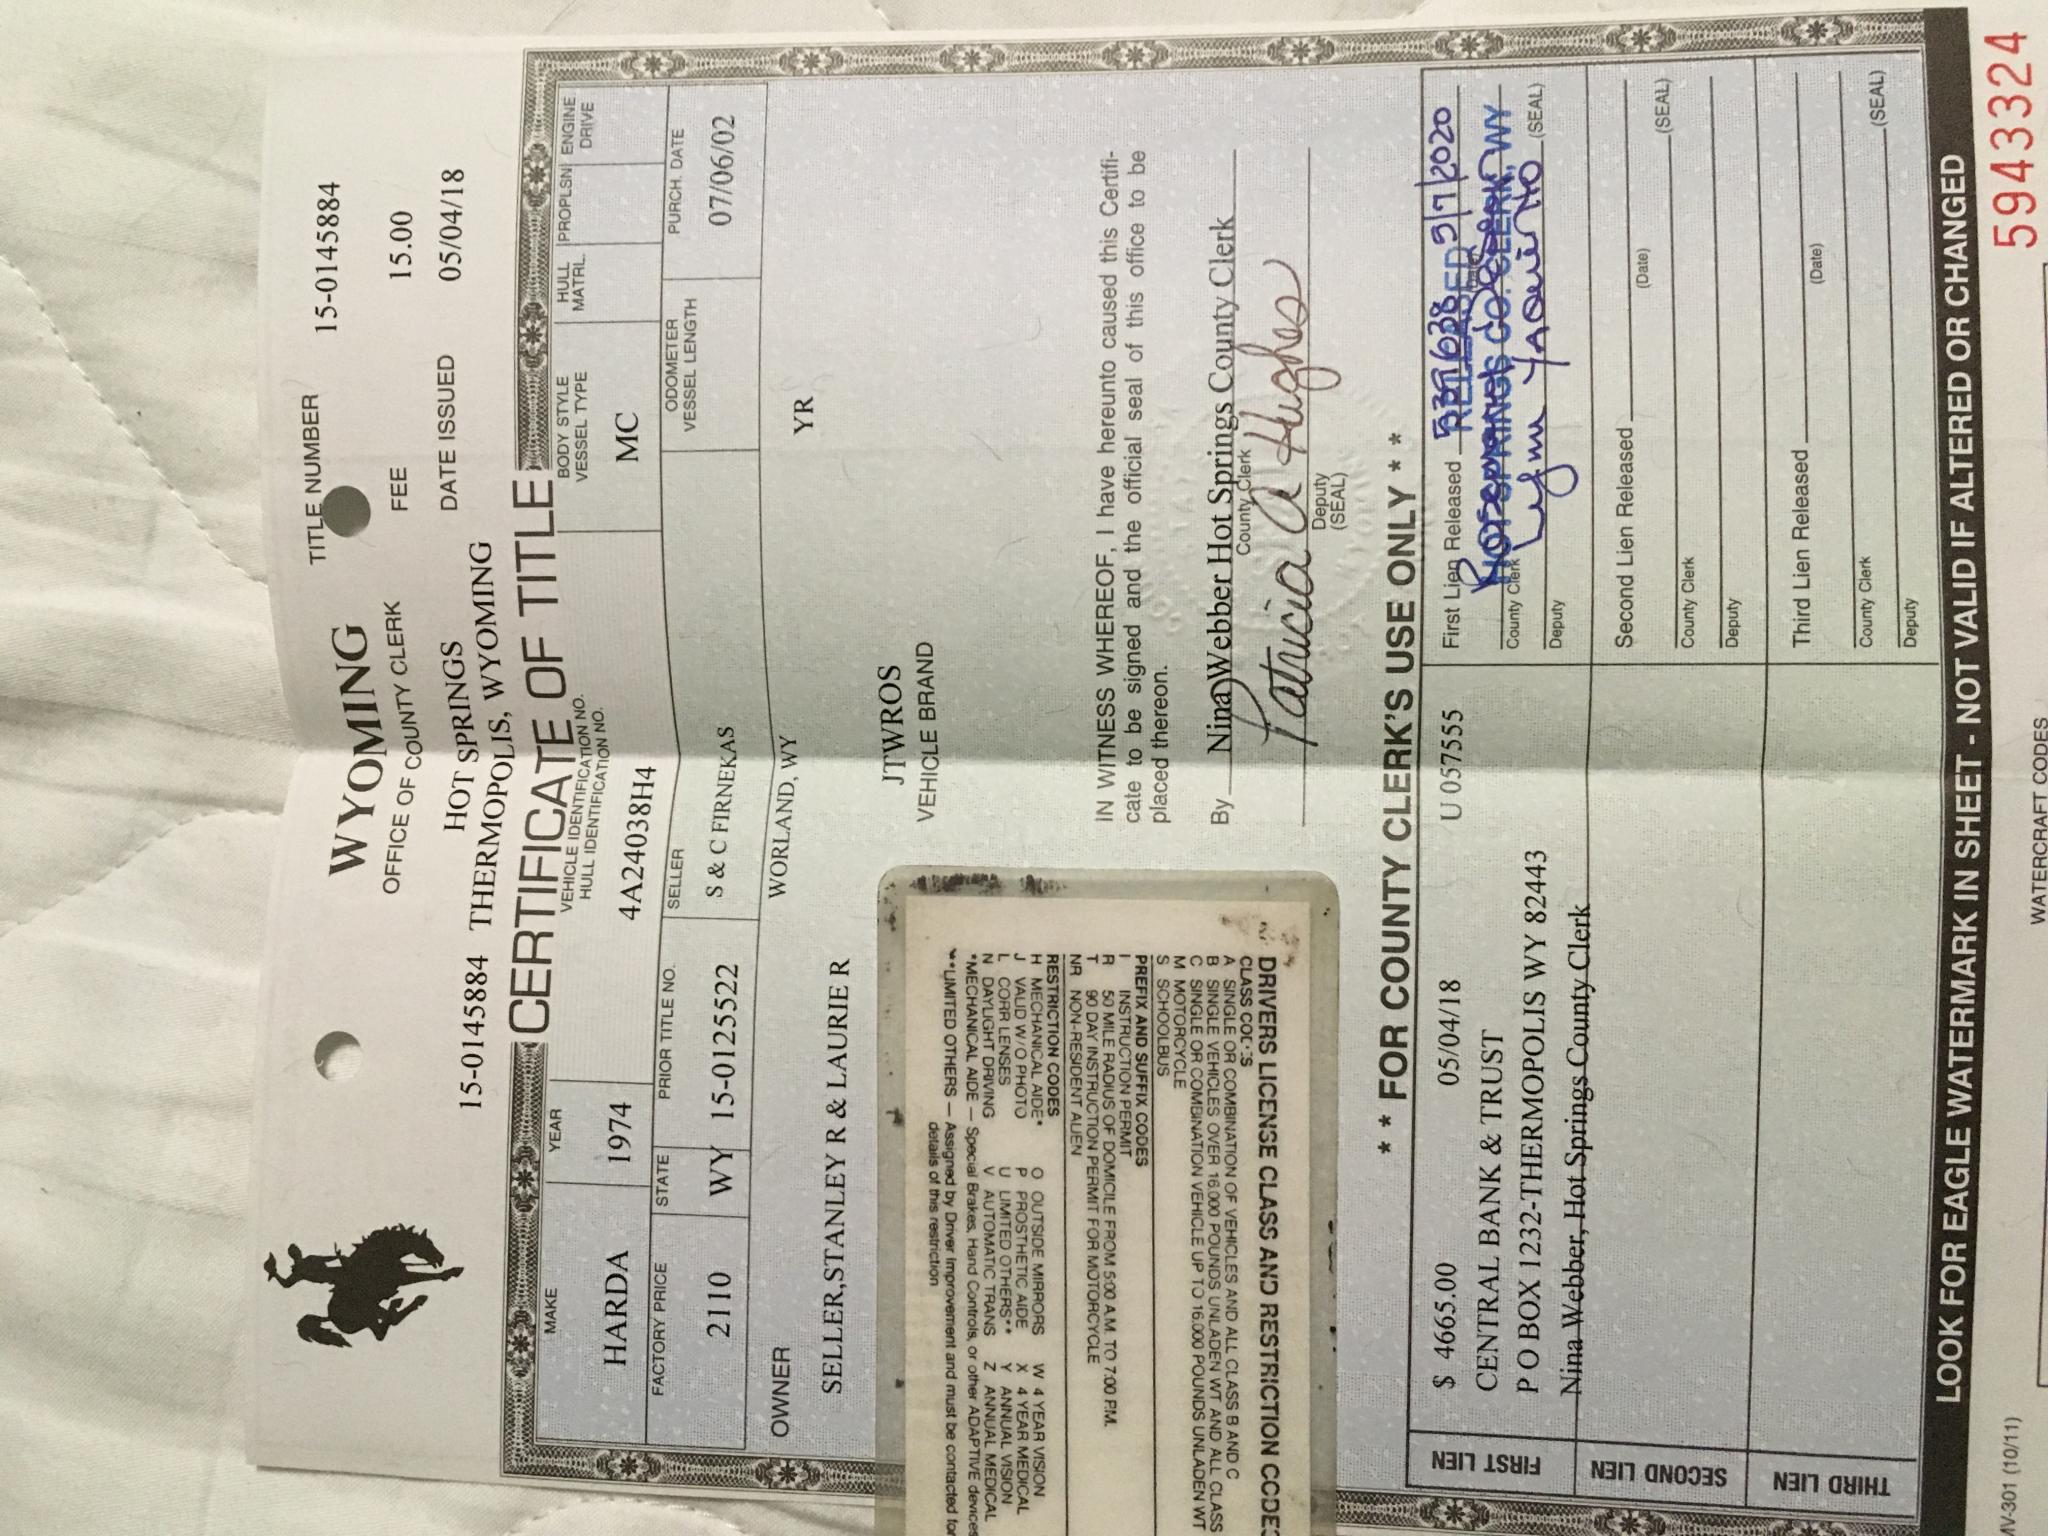 WYOMING
OFFICE OF COUNTY CLERK
TITLE NUMBER 15-0145884
FEE 15.00
HOT SPRINGS
DATE ISSUED 05/04/18
15-0145884 THERMOPOLIS, WYOMING
CERTIFICATE OF TITLE
MAKE YEAR VEHICLE IDENTIFICATION NO. BODY STYLE HULL PROPLSN ENGINE
HULL IDENTIFICATION NO. VESSEL TYPE MATRL. DRIVE
HARDA 1974 4A24038H4 MC
FACTORY PRICE STATE PRIOR TITLE NO. SELLER ODOMETER PURCH. DATE
VESSEL LENGTH
2110 WY 15-0125522 S & C FIRNEKAS 07/06/02
OWNER WORLAND, WY YR
SELLER,STANLEY R & LAURIE R
JTWROS
VEHICLE BRAND
IN WITNESS WHEREOF, I have hereunto caused this Certifi-
cate to be signed and the official seal of this office to be
placed thereon.
By Nina Webber Hot Springs County Clerk
County Clerk
Patricia A Hughes
Deputy
(SEAL)
DRIVERS LICENSE CLASS AND RESTRICTION CODES
CLASS CODES
A SINGLE OR COMBINATION OF VEHICLES AND ALL CLASS B AND C
B SINGLE VEHICLES OVER 16,000 POUNDS UNLADEN WT AND ALL CLASS
C SINGLE OR COMBINATION VEHICLE UP TO 16,000 POUNDS UNLADEN WT
M MOTORCYCLE
S SCHOOLBUS
PREFIX AND SUFFIX CODES
I INSTRUCTION PERMIT
R 50 MILE RADIUS OF DOMICILE FROM 5:00 A.M. TO 7:00 P.M.
T 90 DAY INSTRUCTION PERMIT FOR MOTORCYCLE
NR NON-RESIDENT ALIEN
RESTRICTION CODES
H MECHANICAL AIDE* O OUTSIDE MIRRORS W 4 YEAR VISION
J VALID W/O PHOTO P PROSTHETIC AIDE X 4 YEAR MEDICAL
L CORR LENSES U LIMITED OTHERS** Y ANNUAL VISION
N DAYLIGHT DRIVING V AUTOMATIC TRANS Z ANNUAL MEDICAL
*MECHANICAL AIDE — Special Brakes, Hand Controls, or other ADAPTIVE devices
**LIMITED OTHERS — Assigned by Driver Improvement and must be contacted for
details of this restriction
* * FOR COUNTY CLERK'S USE ONLY * *
FIRST LIEN
$ 4665.00 05/04/18 U 057555
CENTRAL BANK & TRUST
P O BOX 1232-THERMOPOLIS WY 82443
Nina Webber, Hot Springs County Clerk
First Lien Released 5/7/2020
RELEASED
(Date)
HOT SPRINGS CO. CLERK, WY
County Clerk
(SEAL)
Deputy
SECOND LIEN
Second Lien Released
(Date)
County Clerk (SEAL)
Deputy
THIRD LIEN
Third Lien Released
(Date)
County Clerk (SEAL)
Deputy
LOOK FOR EAGLE WATERMARK IN SHEET - NOT VALID IF ALTERED OR CHANGED
MV-301 (10/11) WATERCRAFT CODES 5943324